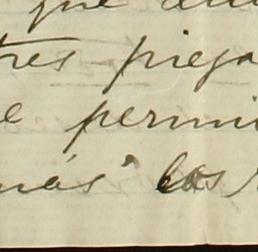 que
tres piega
e permi
más los